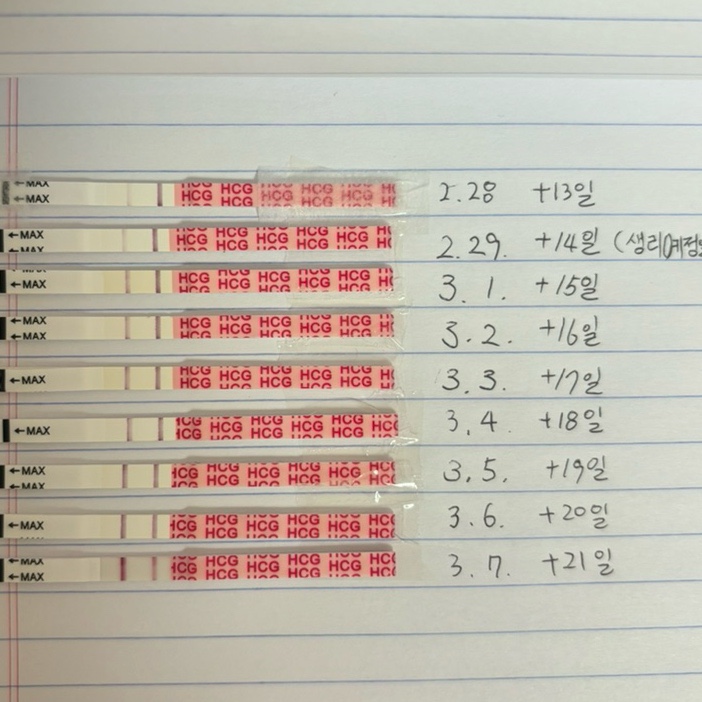 ←MAX ←MAX HCG HCG HCG HCG HCG HCG HCG HCG HCG 2.28 +13일
←MAX HCG HCG HCG HCG HCG HCG HCG HCG HCG HCG 2.29. +14일 (생리예정
←MAX HCG HCG HCG HCG HCG HCG HCG HCG HCG 3.1. +15일
←MAX ←MAX HCG HCG HCG HCG HCG HCG HCG HCG HCG 3.2. +16일
←MAX HCG HCG HCG HCG HCG HCG HCG HCG HCG 3.3. +17일
←MAX HCG HCG HCG HCG HCG HCG HCG HCG HCG 3.4. +18일
←MAX ←MAX HCG HCG HCG HCG HCG HCG HCG HCG HCG 3.5. +19일
←MAX HCG HCG HCG HCG HCG HCG HCG HCG HCG 3.6. +20일
←MAX ←MAX HCG HCG HCG HCG HCG HCG HCG HCG HCG 3.7. +21일